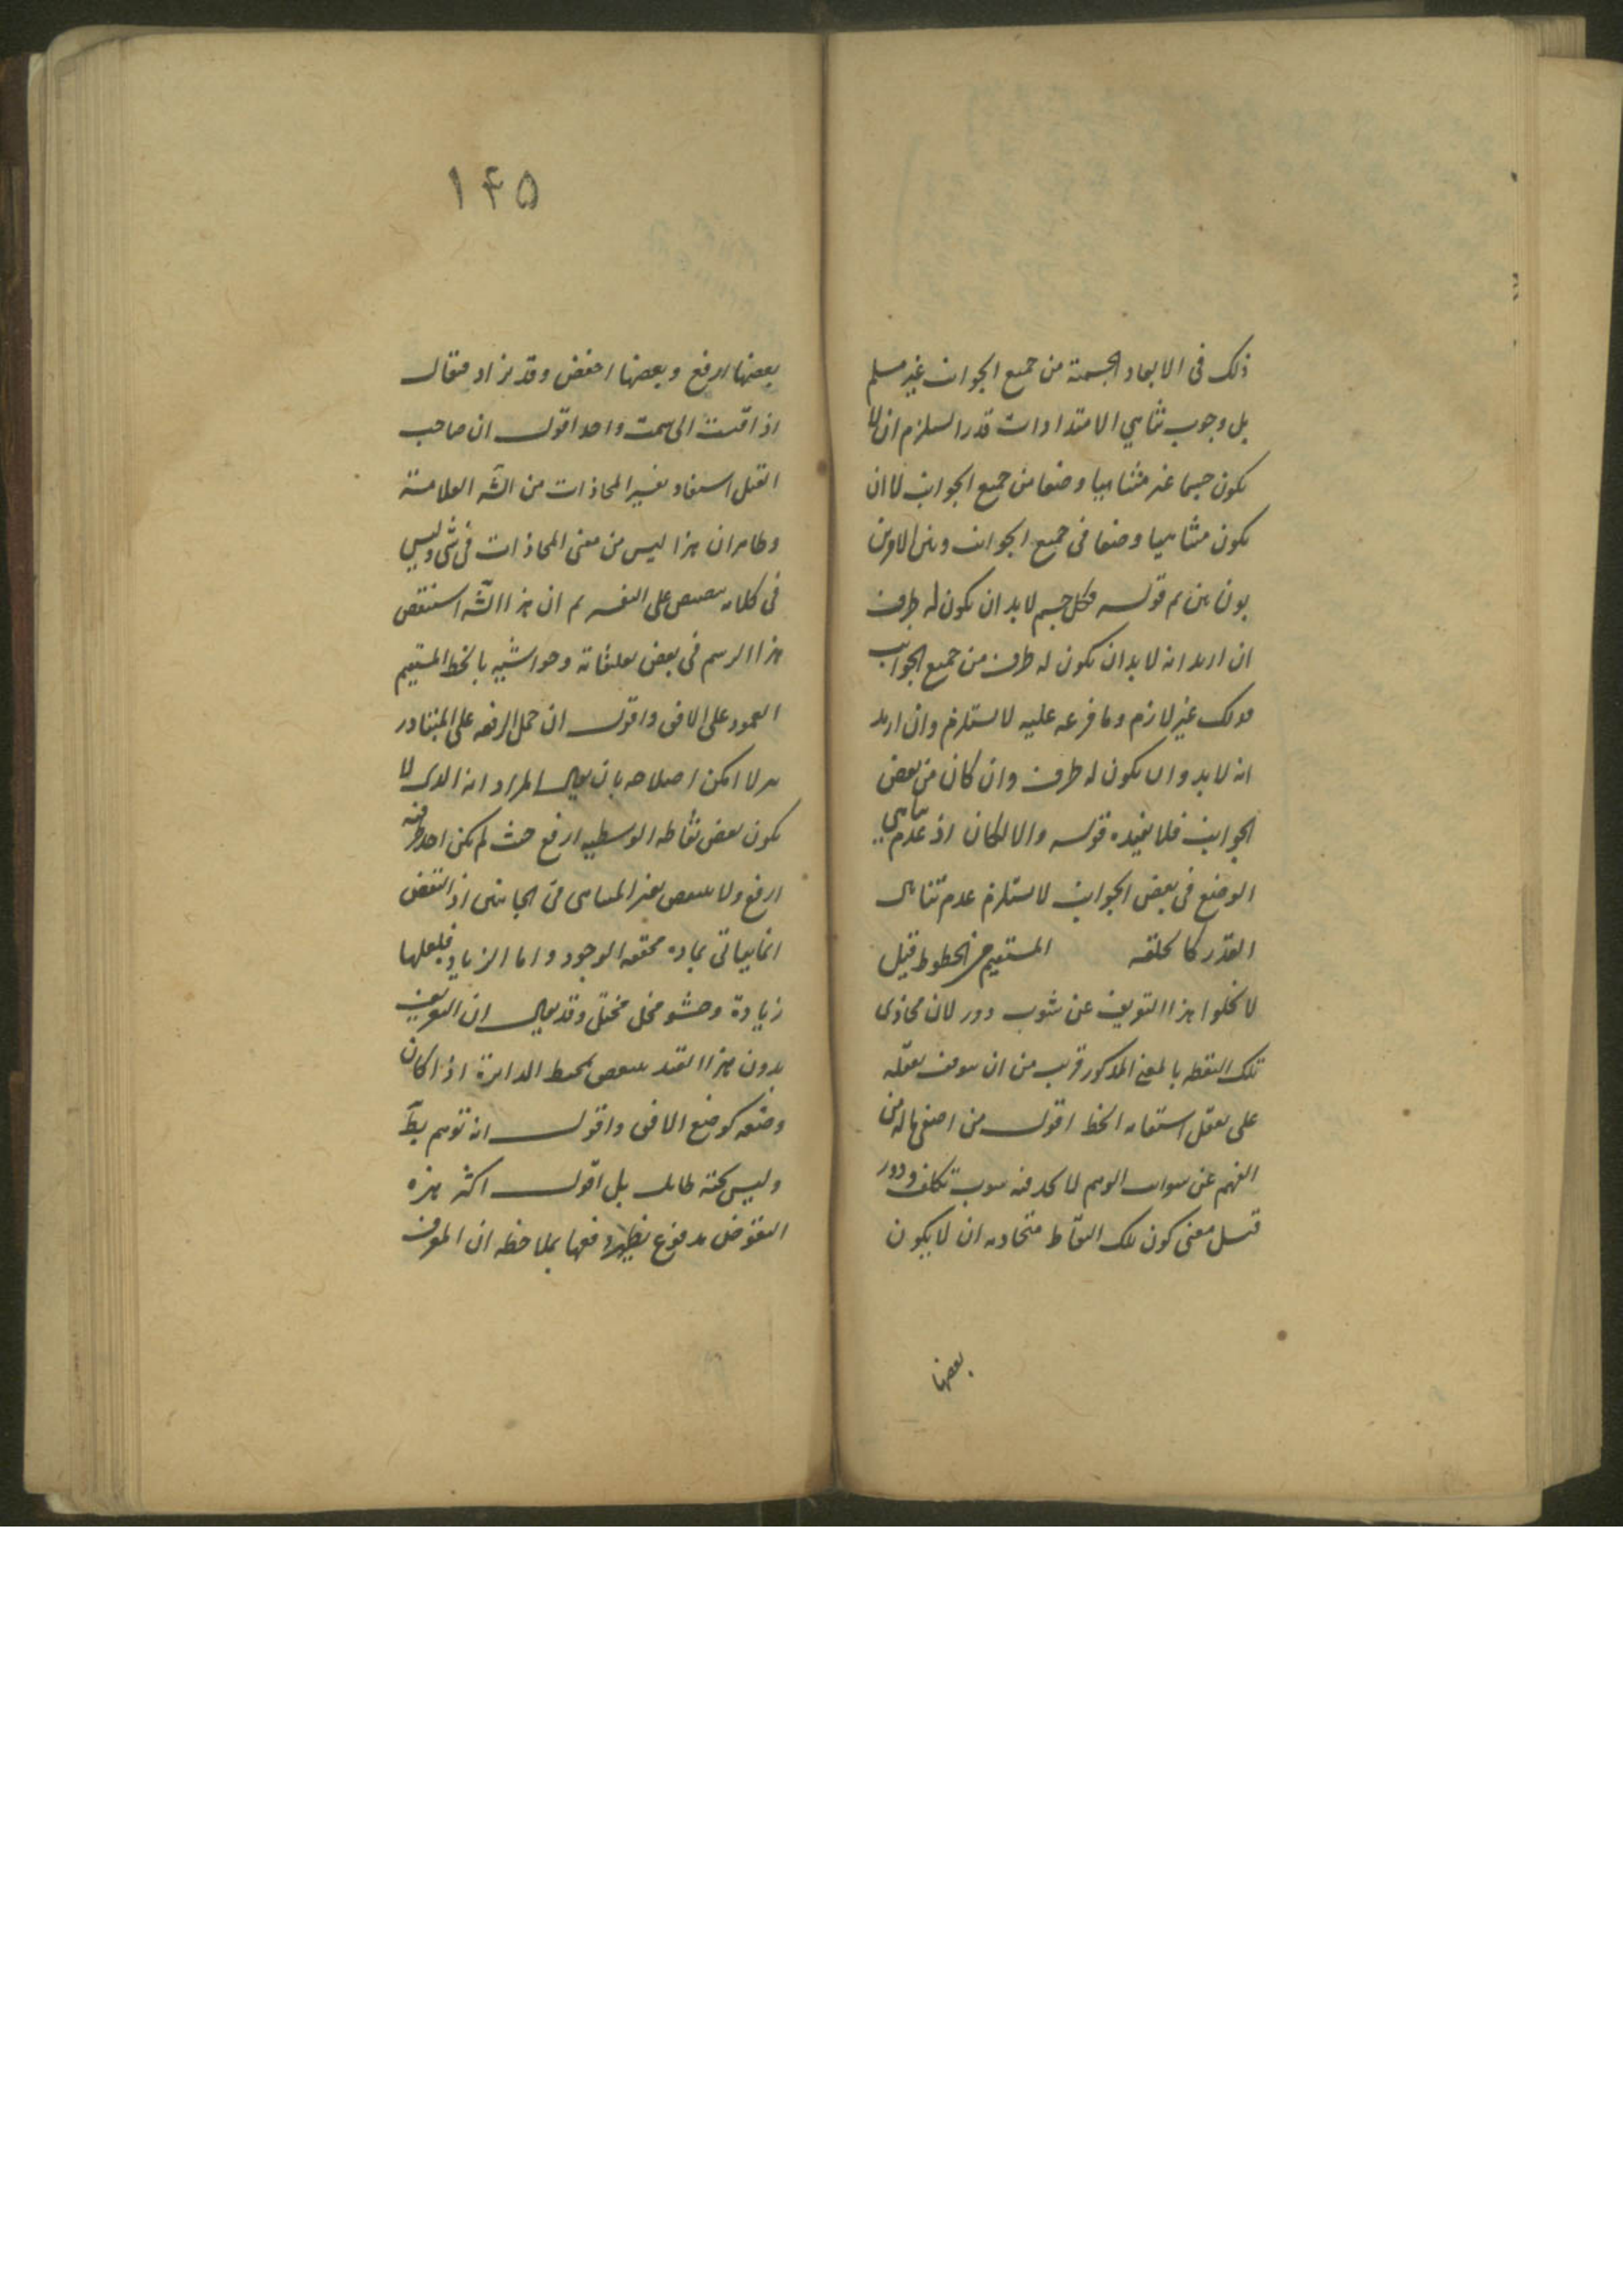 ذلك فى الابعاد الجسمية من جميع الجوانب غير مسلم
بل وجوب تناهى الامتدادات قدرا يستلزم ان لا
يكون جسما غير متناهيا وضعا من جميع الجوانب لا ان
يكون متناهيا وضعا فى جميع الجوانب وبين الامرين
بون بين ثم قوله فكل جسم لابد ان يكون له طرف
ان اريد انه لابد ان يكون له طرف من جميع الجوانب
فذلك غير لازم وما فرعه عليه لا يستلزم وان اريد
انه لابد وان يكون له طرف وان كان من بعض
الجوانب فلا يفيده قوله والا لكان اذ عدم تناهى
الوضع فى بعض الجوانب لا يستلزم عدم تناهى
القدر كالحلقه المستقيم من الخطوط قيل
لا يخلوا هذا التعريف عن شوب دور لان محاذى
تلك النقطه بالمعنى المذكور قريب من ان يتوقف تعقله
على تعقل استقامه الخط اقول من اصغى اله من
الفهم عن الوهم لا يجد فيه تكلف ودور
قيل معنى كون تلك النقاط متحاذيه ان لا يكون
بعضها
۱۴۵
بعضها ارفع وبعضها اخفض وقد يزاد فيقال
اذا قيست الى سمت واحد اقول ان صاحب
القيل استفاد تفسير المحاذات من الشه العلامة
وظاهر ان هذا ليس من معنى المحاذات فى شى وليس
فى كلامه تنصيص على التفسير ثم ان هذا الشه استنقض
هذا الرسم فى بعض تعليقاته وحواشيه بالخط المستقيم
العمود على الافق واقول ان حمل الرفعه على المتبادر
امكن اصلاحه بان يقال المراد انه الذى لا
يكون بعض نقاطه الوسطيه ارفع حيث لم يكن احد طرفيه
ارفع ولا ينتقض بغير المتناهى من الجانبين اذ النقض
انما ياتى بماده محققه الوجود واما الزياده فلعلها
زيادة وحشو مخل مختل وقد يقال ان التعريف
بدون هذا القيد ينتقض بمحيط الدايرة اذا كان
وضعه كوضع الافق واقول انه توهم بط
وليس تحته طايل بل اقول اكثر هذه
النقوض مدفوع يظهر دفعها بملاحظه ان المعرف